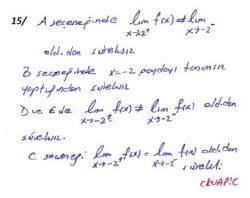 15/ A seçeneğinde lim f(x) ≠ lim
x→2⁺ x→-2⁻
old.dan süreksiz
B seçeneğinde x=-2 paydayı tanımsız
yaptığından süreksiz
D ve E de lim f(x) ≠ lim f(x) old.dan
x→-2⁺ x→-2⁻
süreksiz.
C seçeneği lim f(x) = lim f(x) old.dan
x→-2⁺ x→-2⁻ sürekli
CEVAP:C